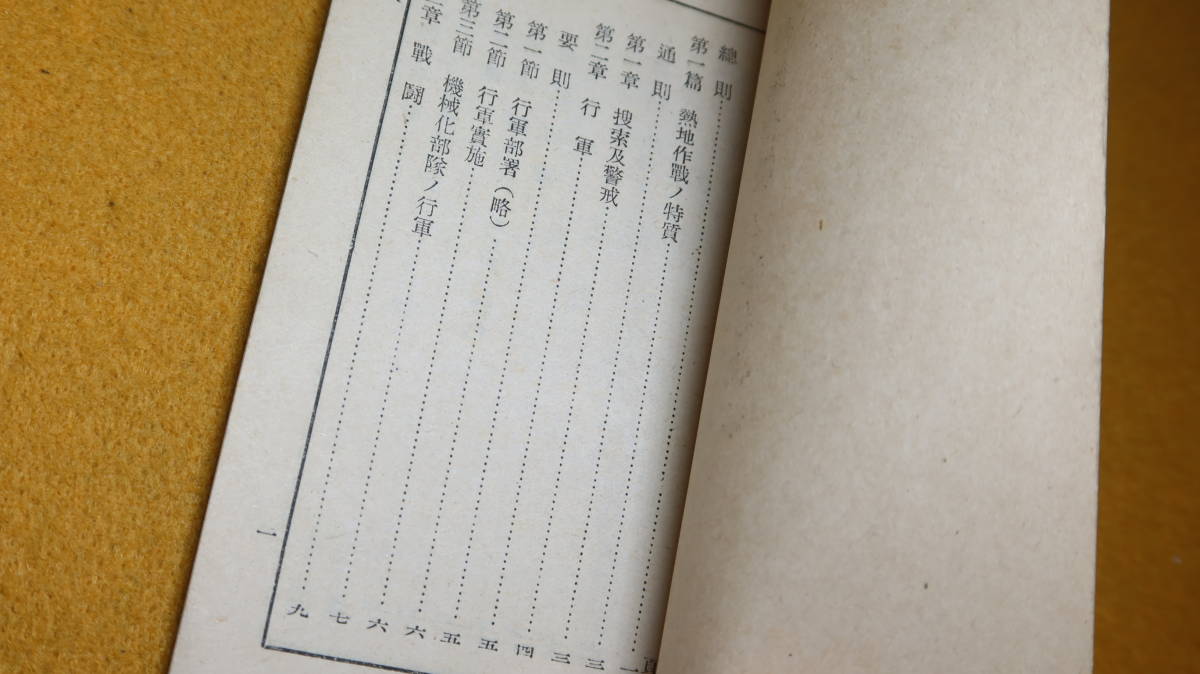 總則……頁一
第一篇 熱地作戰ノ特質……三
通則……三
第一章 搜索及警戒……四
第二章 行軍……五
要則……五
第一節 行軍部署(略)……六
第二節 行軍實施……六
第三節 機械化部隊ノ行軍……七
章 戰鬪……九
一